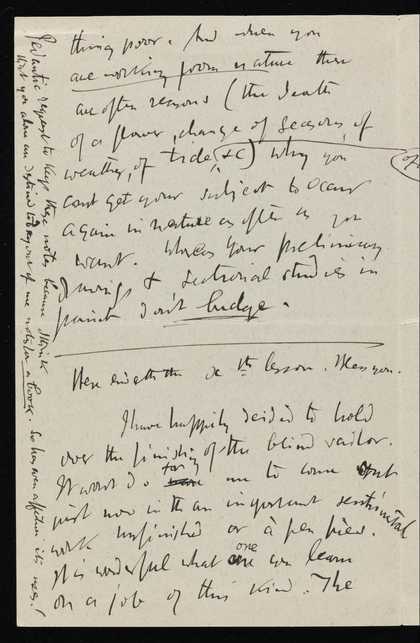 thing poor. And when you
are working from nature there
are often reasons (the death
of a flower, change of seasons, of
weather, of tide, &c) why you
cant get your subject to occur
again in nature as often as you
want. Whereas your preliminary
& sectional studies in
paint don't budge.
Here endeth the xth lesson. Bless you.
I have happily decided to hold
over the finishing of the blind sailor.
It wont do for me to come out
just now with an important sentimental
work unfinished or a pen piece.
It is wonderful what one can learn
on a job of this kind. The
Pedantic request to keep these notes because I think
that you alone can
notes for a book. So